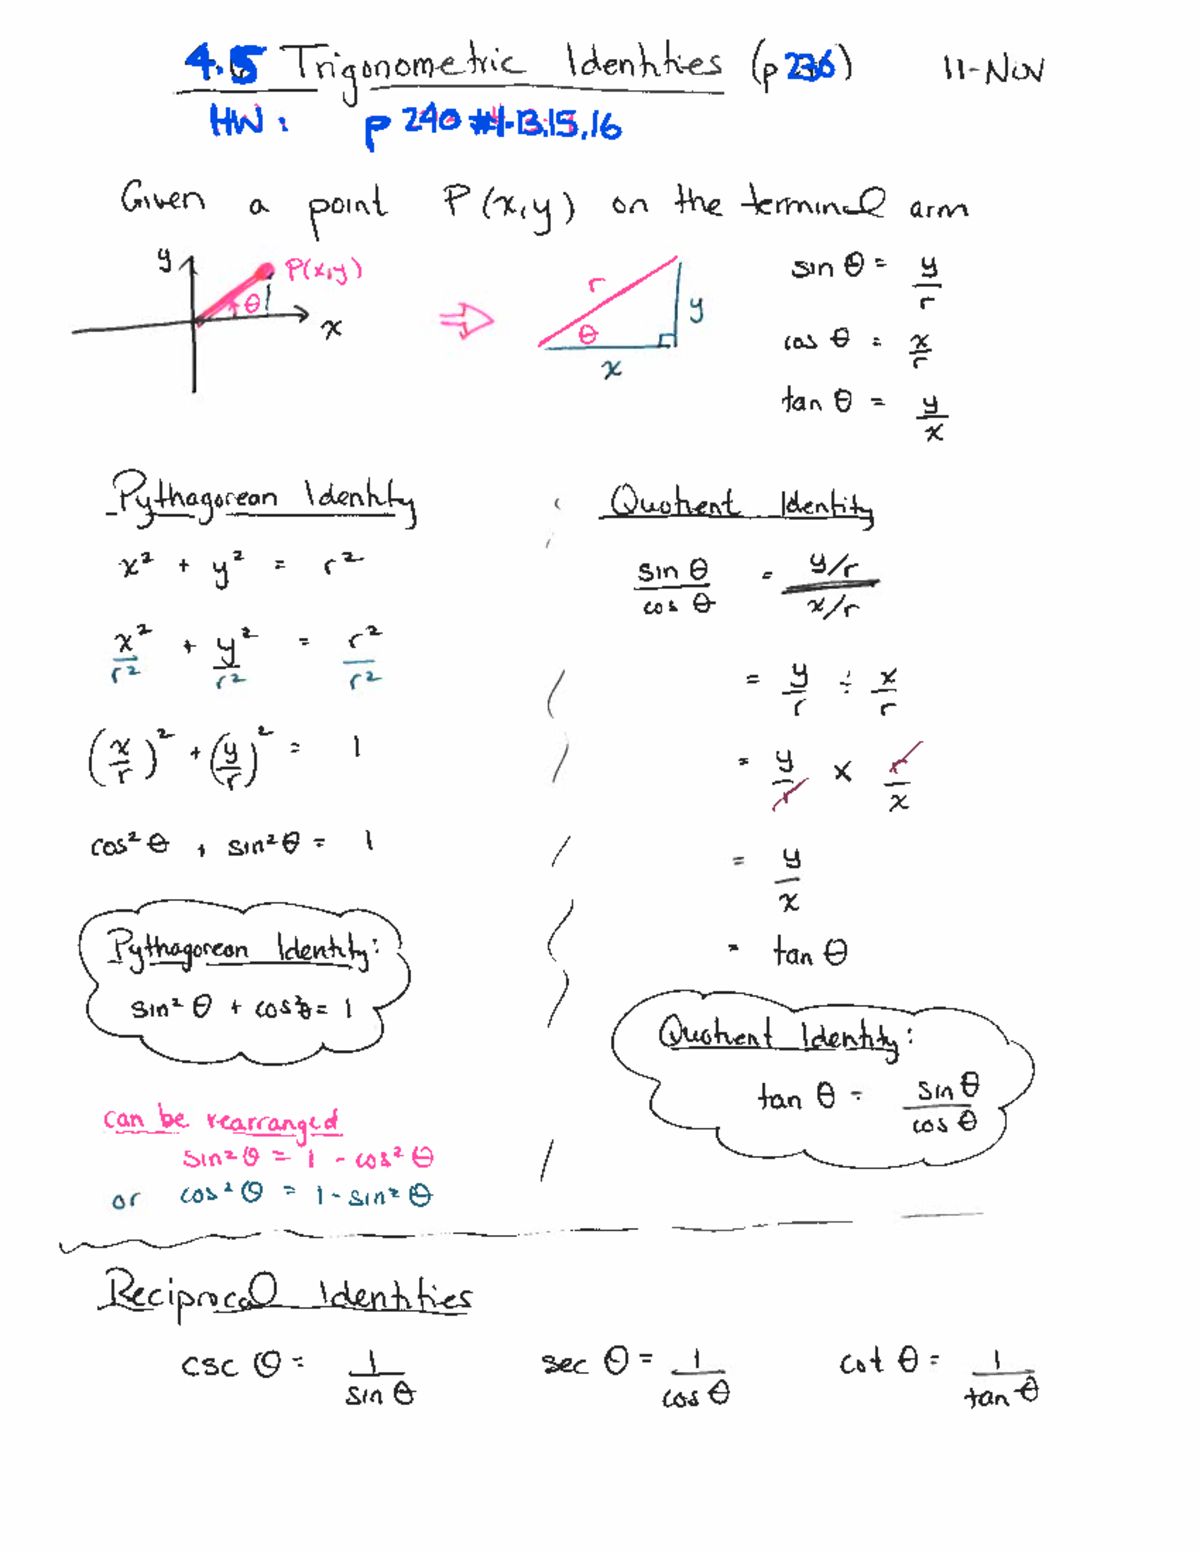 4.5 Trigonometric Identities (p 236) 11-Nov
HW: p 240 #1-13,15,16
Given a point P(x,y) on the terminal arm
y P(x,y) θ x
r θ y x
sin θ = y/r
cos θ = x/r
tan θ = y/x
Pythagorean Identity
x² + y² = r²
x²/r² + y²/r² = r²/r²
(x/r)² + (y/r)² = 1
cos²θ + sin²θ = 1
Pythagorean Identity:
sin²θ + cos²θ = 1
can be rearranged
sin²θ = 1 - cos²θ
or cos²θ = 1 - sin²θ
Quotient Identity
sin θ/cos θ = y/r / x/r
= y/r ÷ x/r
= y/r × r/x
= y/x
= tan θ
Quotient Identity:
tan θ = sin θ/cos θ
Reciprocal Identities
csc θ = 1/sin θ sec θ = 1/cos θ cot θ = 1/tan θ